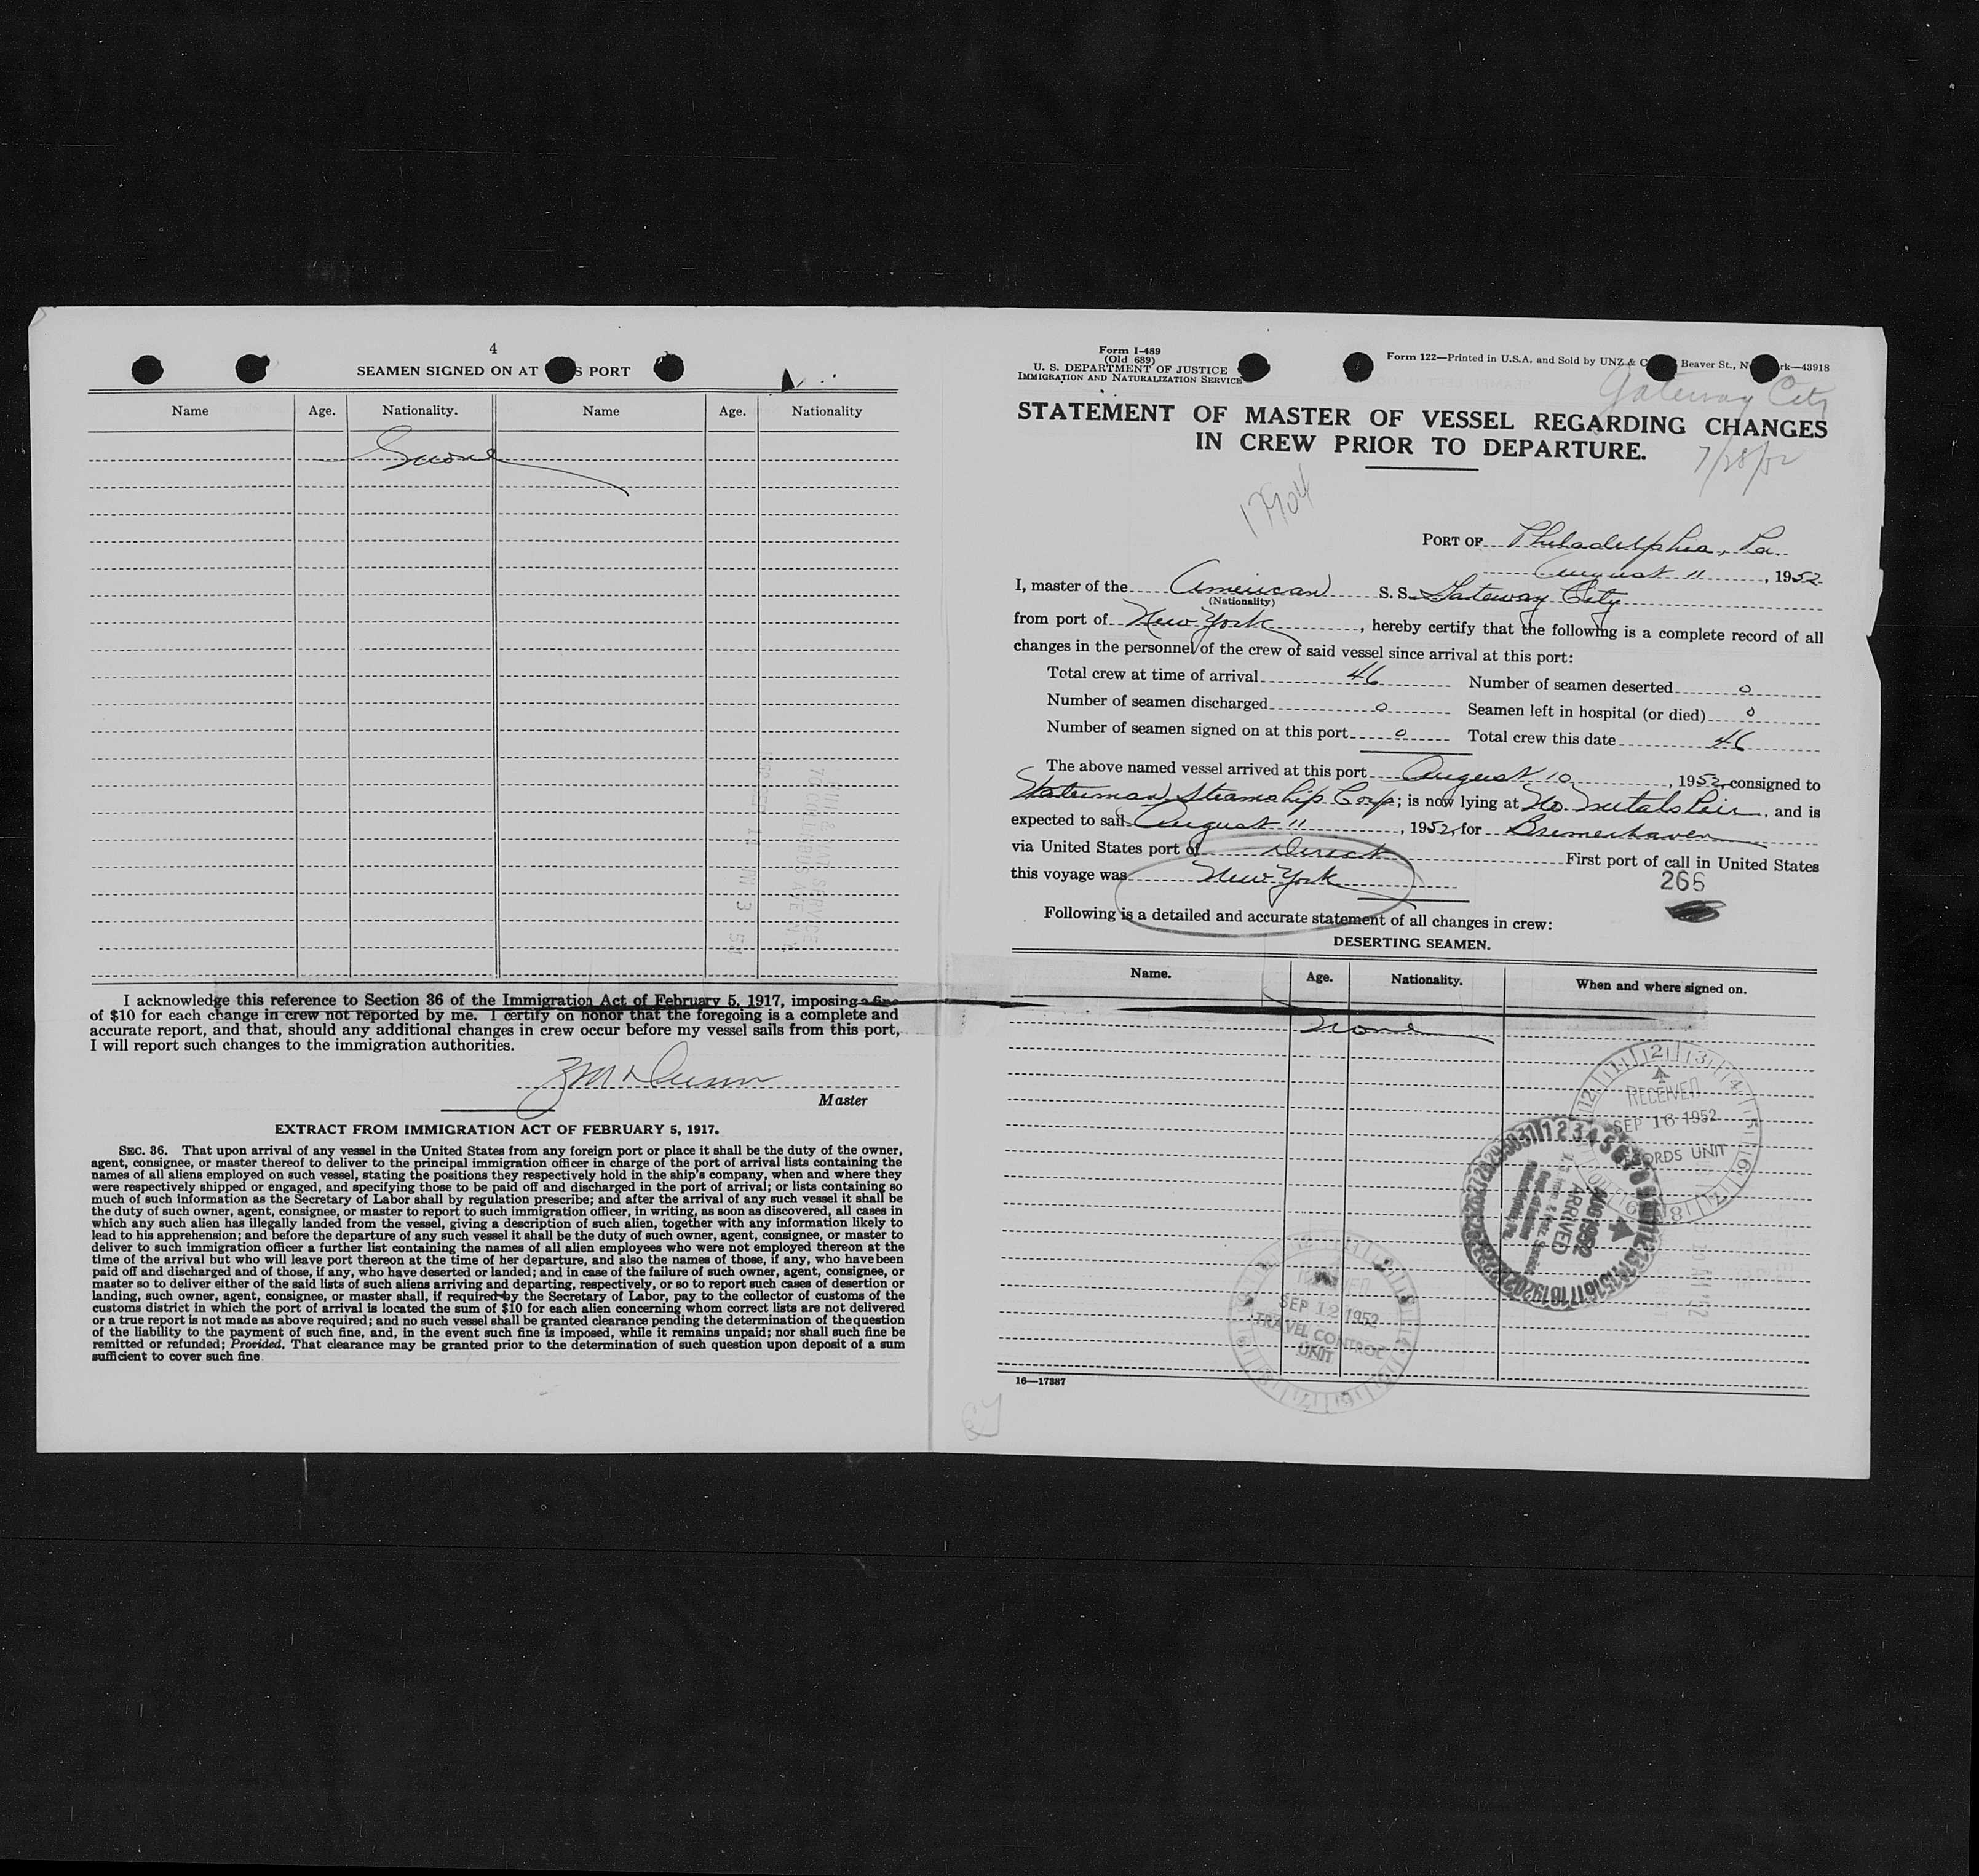 4
SEAMEN SIGNED ON AT S PORT
Name Age. Nationality. Name Age. Nationality
None
I acknowledge this reference to Section 36 of the Immigration Act of February 5, 1917, imposing a fine
of $10 for each change in crew not reported by me. I certify on honor that the foregoing is a complete and
accurate report, and that, should any additional changes in crew occur before my vessel sails from this port,
I will report such changes to the immigration authorities.
Master
EXTRACT FROM IMMIGRATION ACT OF FEBRUARY 5, 1917.
SEC. 36. That upon arrival of any vessel in the United States from any foreign port or place it shall be the duty of the owner,
agent, consignee, or master thereof to deliver to the principal immigration officer in charge of the port of arrival lists containing the
names of all aliens employed on such vessel, stating the positions they respectively hold in the ship's company, when and where they
were respectively shipped or engaged, and specifying those to be paid off and discharged in the port of arrival; or lists containing so
much of such information as the Secretary of Labor shall by regulation prescribe; and after the arrival of any such vessel it shall be
the duty of such owner, agent, consignee, or master to report to such immigration officer, in writing, as soon as discovered, all cases in
which any such alien has illegally landed from the vessel, giving a description of such alien, together with any information likely to
lead to his apprehension; and before the departure of any such vessel it shall be the duty of such owner, agent, consignee, or master to
deliver to such immigration officer a further list containing the names of all alien employees who were not employed thereon at the
time of the arrival but who will leave port thereon at the time of her departure, and also the names of those, if any, who have been
paid off and discharged and of those, if any, who have deserted or landed; and in case of the failure of such owner, agent, consignee, or
master so to deliver either of the said lists of such aliens arriving and departing, respectively, or so to report such cases of desertion or
landing, such owner, agent, consignee, or master shall, if required by the Secretary of Labor, pay to the collector of customs of the
customs district in which the port of arrival is located the sum of $10 for each alien concerning whom correct lists are not delivered
or a true report is not made as above required; and no such vessel shall be granted clearance pending the determination of the question
of the liability to the payment of such fine, and, in the event such fine is imposed, while it remains unpaid; nor shall such fine be
remitted or refunded; Provided, That clearance may be granted prior to the determination of such question upon deposit of a sum
sufficient to cover such fine
Form I-489
(Old 689)
U. S. DEPARTMENT OF JUSTICE
IMMIGRATION AND NATURALIZATION SERVICE
Form 122—Printed in U.S.A. and Sold by UNZ & C Beaver St., N rk—43918
Gateway City
STATEMENT OF MASTER OF VESSEL REGARDING CHANGES
IN CREW PRIOR TO DEPARTURE.
7/28/52
17904
PORT OF Philadelphia, Pa.
August 11, 1952
I, master of the American S. S. Gateway City
(Nationality)
from port of New York, hereby certify that the following is a complete record of all
changes in the personnel of the crew of said vessel since arrival at this port:
Total crew at time of arrival 46 Number of seamen deserted 0
Number of seamen discharged 0 Seamen left in hospital (or died) 0
Number of seamen signed on at this port 0 Total crew this date 46
The above named vessel arrived at this port August 10, 1952, consigned to
Waterman Steamship Corp; is now lying at No. Metals Pier, and is
expected to sail August 11, 1952, for Bremerhaven
via United States port of Direct First port of call in United States
this voyage was New York
266
Following is a detailed and accurate statement of all changes in crew:
DESERTING SEAMEN.
Name. Age. Nationality. When and where signed on.
None
RECEIVED
SEP 16 1952
RECORDS UNIT
ARRIVED
SEP 12 1952
TRAVEL CONTROL
UNIT
16—17387